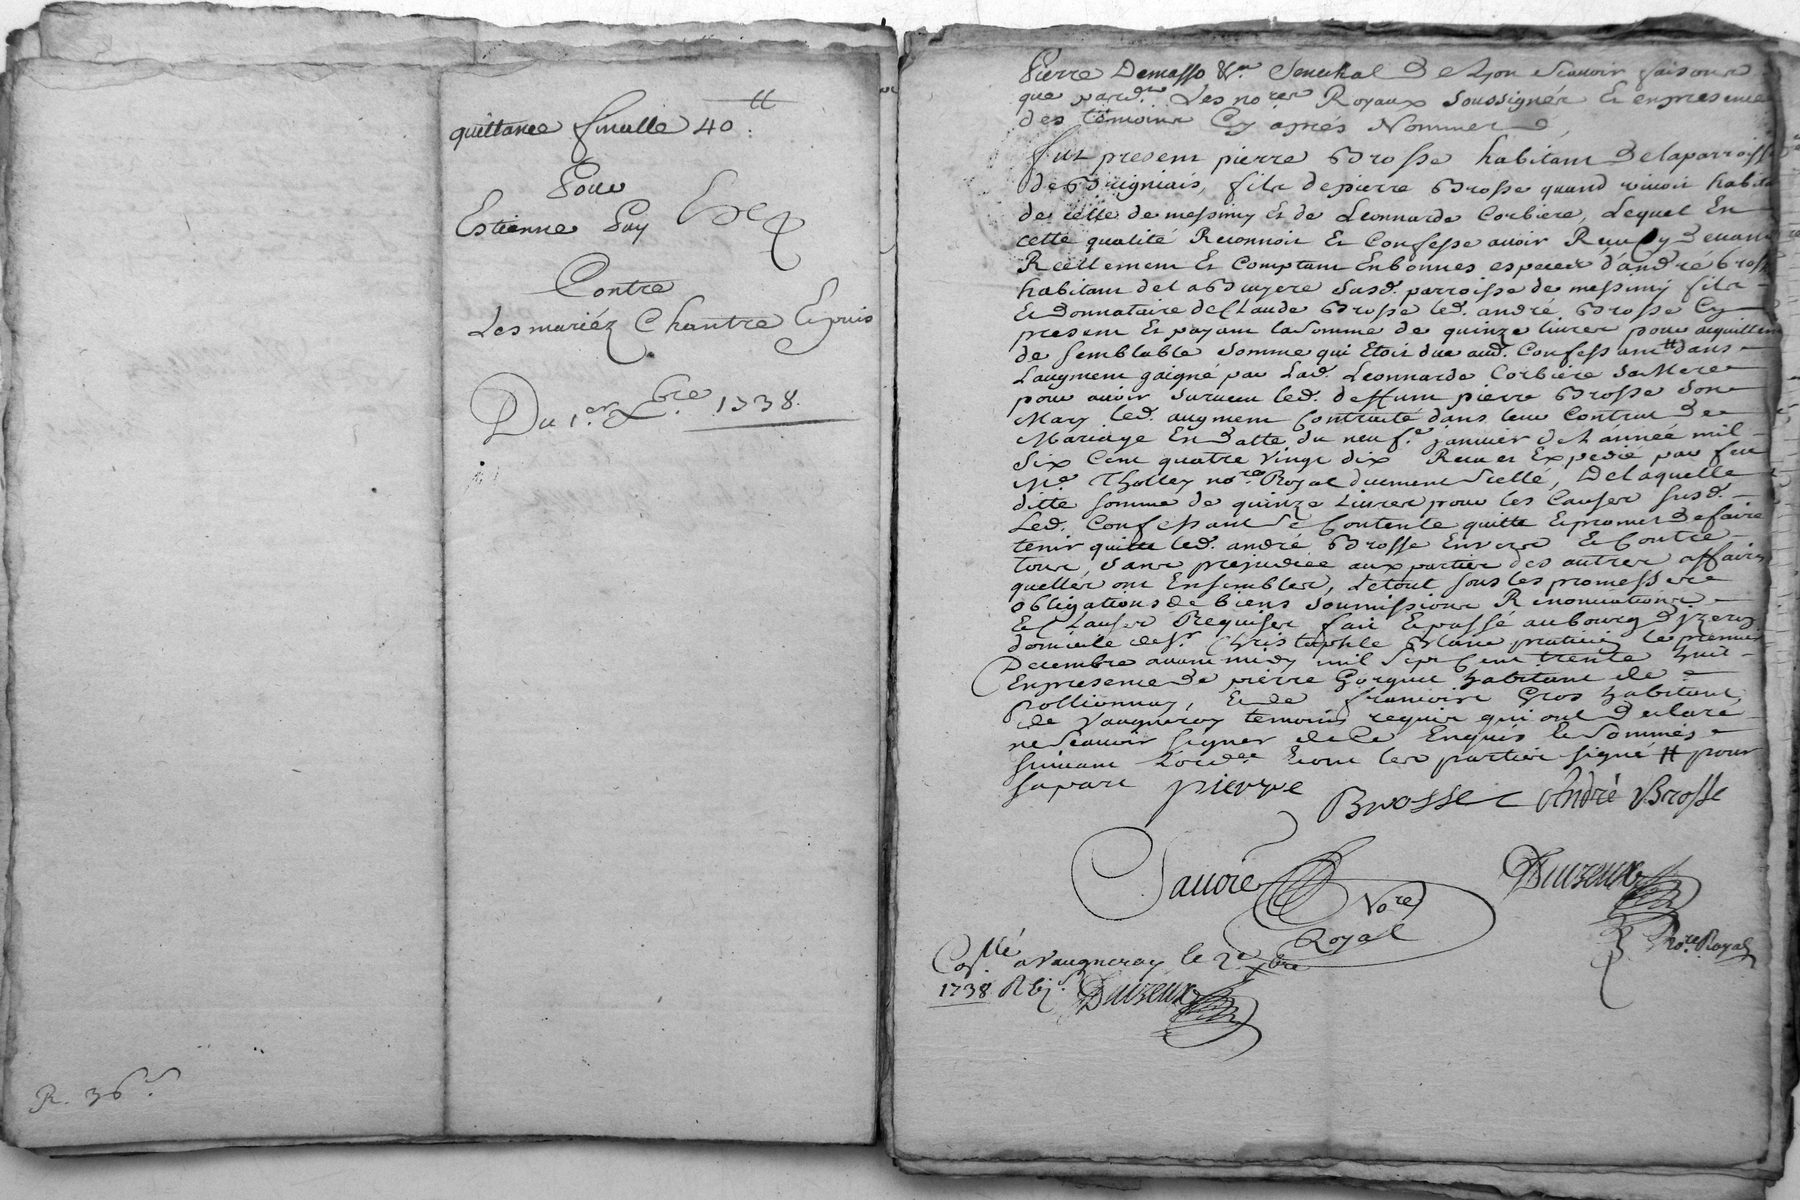 tt
quittance finalle 40 :
Pour
Estienne Pay
Contre
Les mariéz Chantre Epuis
Du 1.er Xbre 1738.
R. 36 s.
Pierre Demasso &a. Senechal De Lyon scavoir faisons
que pard.t Les no.res Royaux soussignés Et en presence
des temoins Cy aprés Nommer
fut present pierre Brosse habitant De la parroisse
de Brignais, fils de pierre Brosse quand vivoit habit.
de celle de messimy Et de Leonnarde Corbiere, Lequel En
cette qualité Reconnoit Et Confesse avoir Receu Cy devant
Reellement Et Comptant En bonnes especes d'andré Brosse
habitant de la Bruyere susd. parroisse de messimy fils
Et donnataire de Claude Brosse led. andré Brosse Cy
present Et payant la somme de quinze livres pour acquittem
de semblable somme qui Etoit due aud. Confessant tt dans
Laugment gaigné par Lad. Leonnarde Corbiere sa Mere
pour avoir survecu led. deffunt pierre Brosse son
Mary led. augment Contracté dans leur Contrat De
Mariage En datte du neuf.e janvier de L'année mil
six Cent quatre vingt dix Receu et Expedié par feu
Me. Tholley no.re Royal duement scellé, De laquelle
ditte somme de quinze Livres pour les Causes susd.
Led. Confessant se Contente quitte Et promet De faire
tenir quitte led. andré Brosse Envers Et Contre
tous, sans prejudice aux parties des autres affaires
quelles ont Ensembles, Le tout sous les promesses
obligations de biens soumissions Renonciations
Et Clauses Requises fait Et passé au bourg d'yzeron
domicile de Sr. Christophle Blanc praticien le premier
Decembre avant midy mil sept Cent trente huit
En presence De pierre Gorguet habitant de
pollionnay, Et de francois Gros habitant
de Vaugneray temoins requis qui ont Declaré
ne scavoir signer de Ce Enquis Et sommés
suivant Lord.ce Et ont les parties signé tt pour
sa part pierre Brosse André Brosse
Favre No.re Royal
Duizeux no.re Royal
Coll.é a Vaugneray le 2.e Xbre
1738. R 6 s. Duizeux